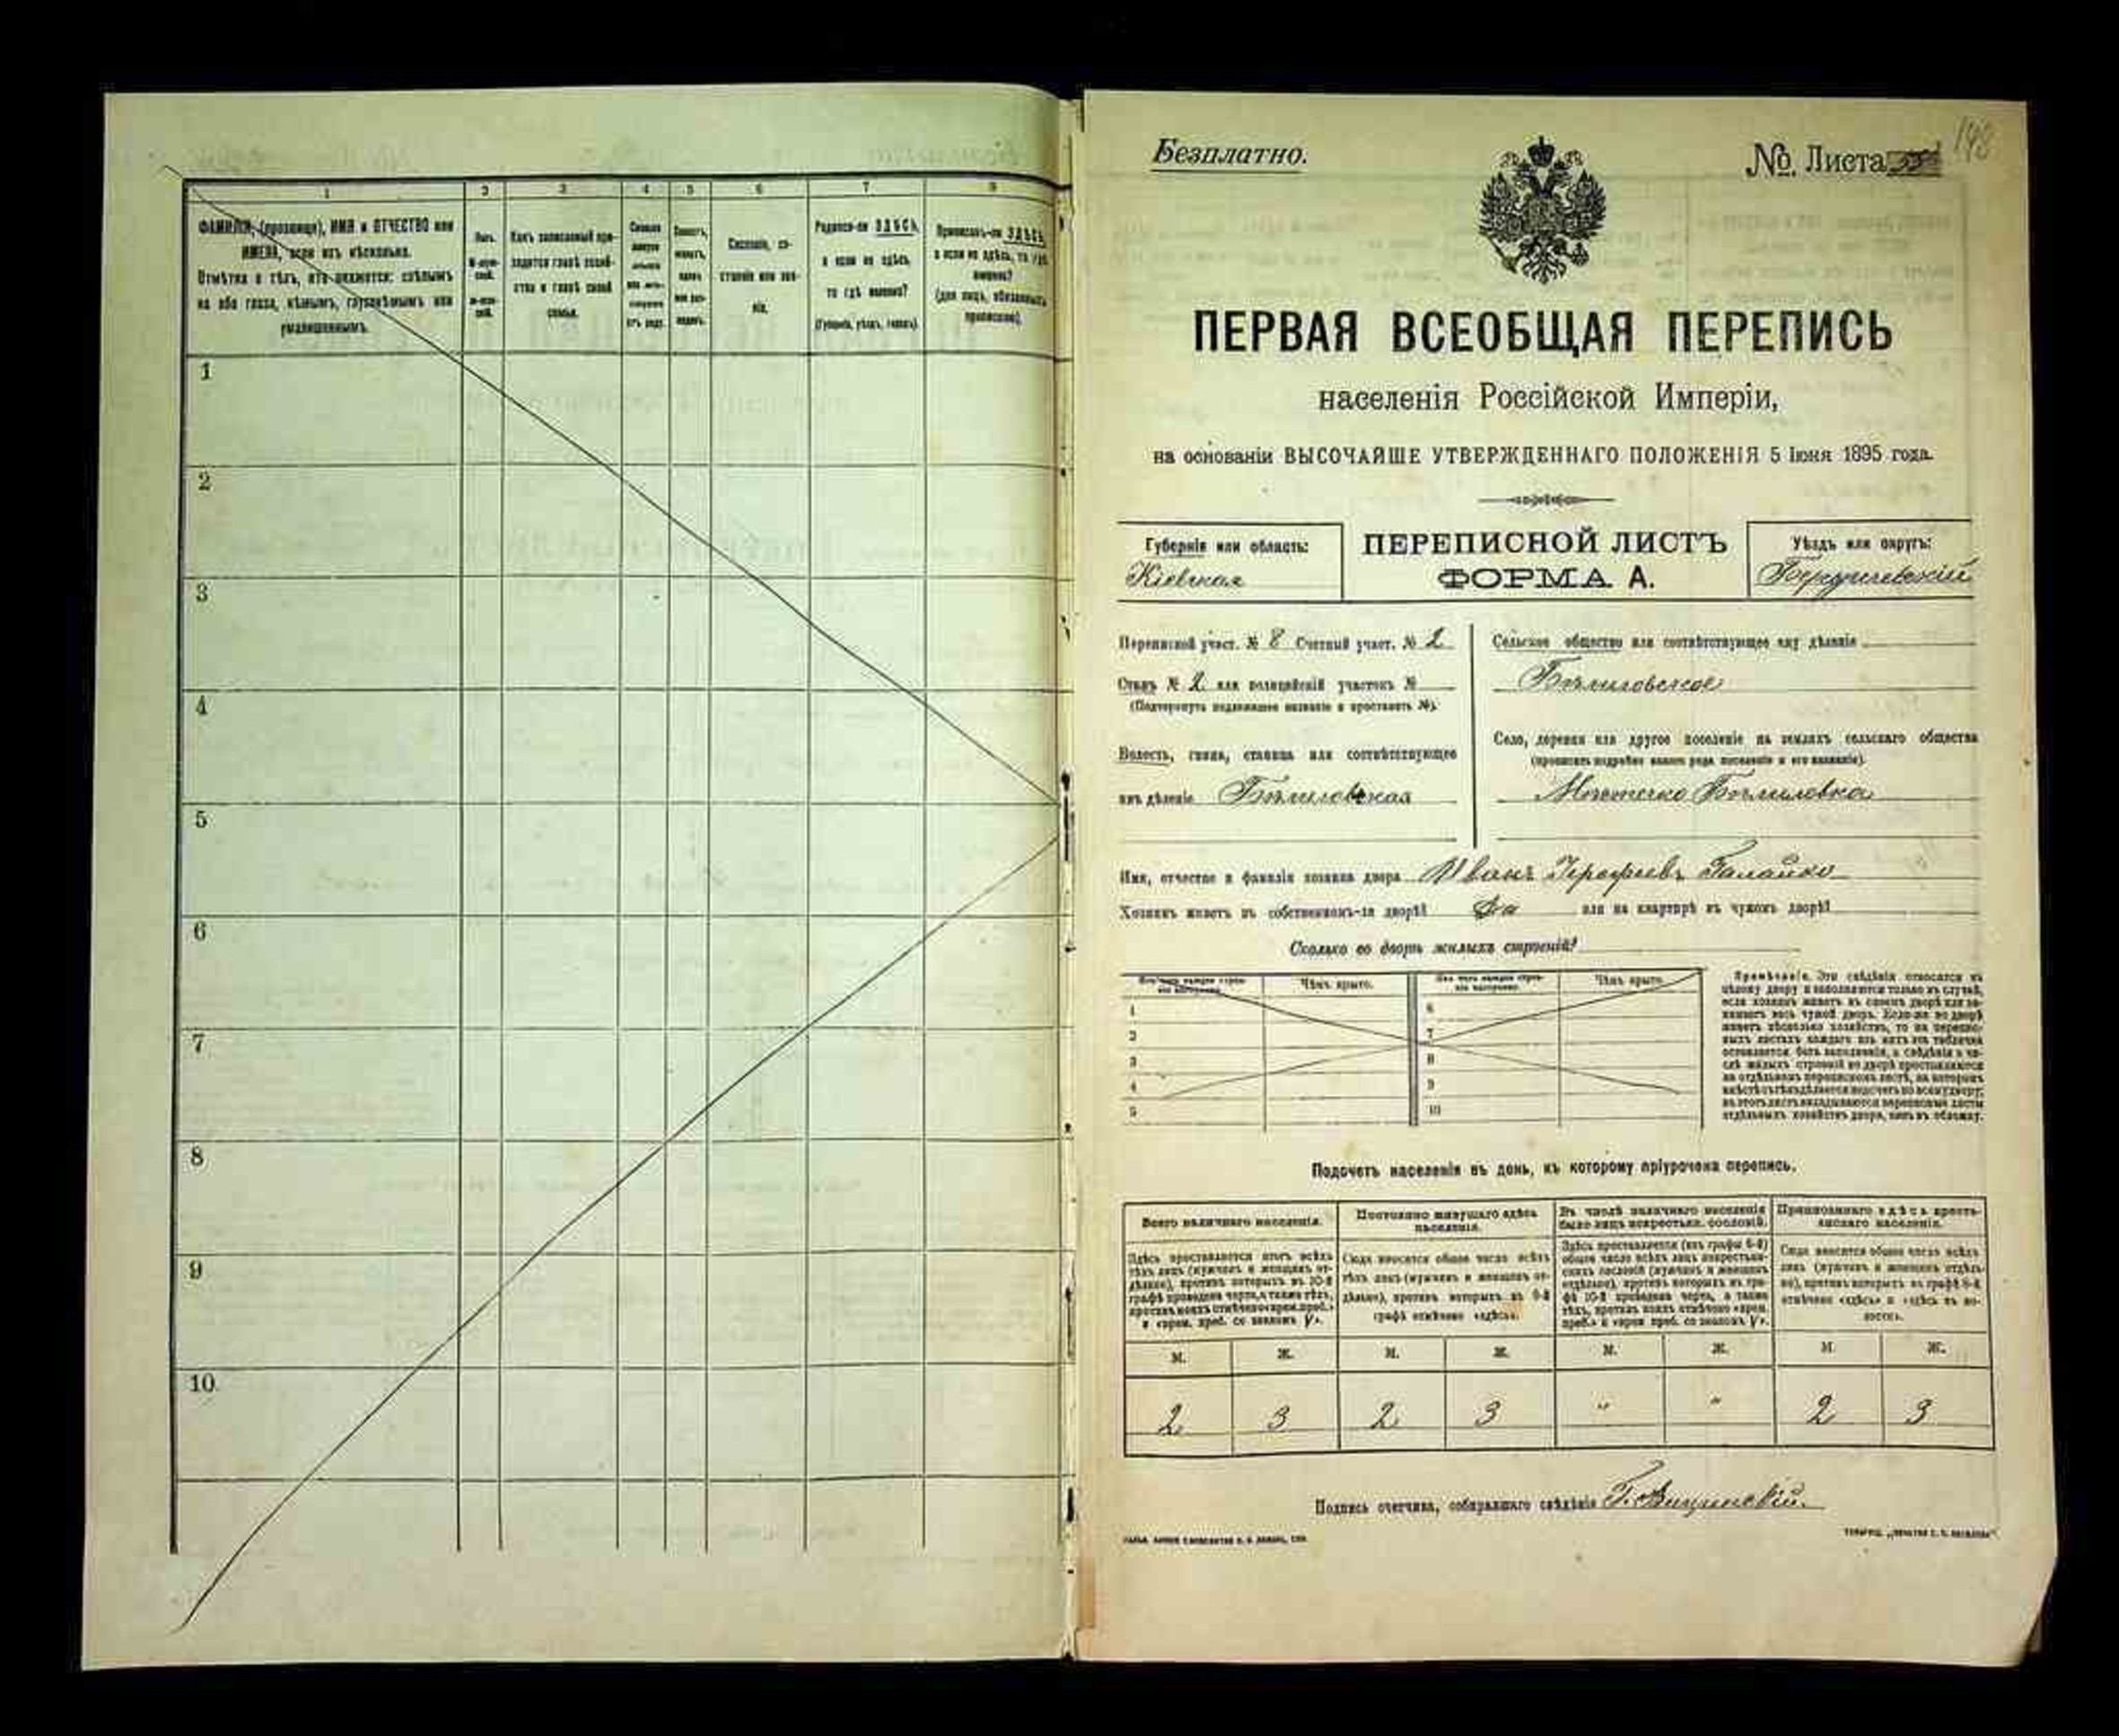 1
2
3
4
5
6
7
8
ФАМИЛІЯ, (прозвище), ИМЯ и ОТЧЕСТВО или
ИМЕНА, если ихъ нѣсколько.
Отмѣтка о тѣхъ, кто окажется: слѣпымъ
на оба глаза, нѣмымъ, глухонѣмымъ или
умалишеннымъ.
Полъ.
Какъ записанный при-
ходится главѣ хозяй-
ства и главѣ своей
семьи.
Сословіе, со-
стояніе или зва-
ніе.
Родился-ли ЗДѢСЬ,
а если не здѣсь,
то гдѣ именно?
(Губернія, уѣздъ, городъ).
Приписанъ-ли ЗДѢСЬ,
а если не здѣсь, то гдѣ
именно?
(для лицъ, обязанныхъ
припискою).
1
2
3
4
5
6
7
8
9
10
148
Безплатно.
№ Листа
ПЕРВАЯ ВСЕОБЩАЯ ПЕРЕПИСЬ
населенія Россійской Имперіи,
на основаніи ВЫСОЧАЙШЕ УТВЕРЖДЕННАГО ПОЛОЖЕНІЯ 5 Іюня 1895 года.
Губернія или область:
Кіевская
ПЕРЕПИСНОЙ ЛИСТЪ
ФОРМА А.
Уѣздъ или округъ:
Бердичевскій
Переписной участ. № 8 Счетный участ. № 2
Станъ № 2 или полицейскій участокъ №
(Подчеркнуть надлежащее названіе и проставить №).
Волость, гмина, станица или соотвѣтствующее
имъ дѣленіе Бѣлиловская
Сельское общество или соотвѣтствующее ему дѣленіе
Бѣлиловское
Село, деревня или другое поселеніе на земляхъ сельскаго общества
(прописать подробно какого рода поселеніе и его названіе).
Мѣстечко Бѣлиловка
Имя, отчество и фамилія хозяина двора Иванъ Ерофѣевъ Галайко
Хозяинъ живетъ въ собственномъ-ли дворѣ? да или на квартирѣ въ чужомъ дворѣ?
Сколько во дворѣ жилыхъ строеній?
Изъ чего каждое строе-
ніе построено.
Чѣмъ крыто.
Изъ чего каждое строе-
ніе построено.
Чѣмъ крыто.
1
2
3
4
5
6
7
8
9
10
Примѣчаніе. Эти свѣдѣнія относятся къ
цѣлому двору и заполняются только въ случаѣ,
если хозяинъ живетъ въ своемъ дворѣ или за-
нимаетъ весь чужой дворъ. Если-же во дворѣ
живетъ нѣсколько хозяйствъ, то на перепис-
ныхъ листахъ каждаго изъ нихъ эта табличка
оставляется безъ заполненія, а свѣдѣнія о чи-
слѣ жилыхъ строеній во дворѣ проставляются
на отдѣльномъ переписномъ листѣ, на которомъ
вмѣстѣ съ тѣмъ дѣлается подсчетъ по всему двору;
въ этотъ листъ вкладываются переписные листы
отдѣльныхъ хозяйствъ двора, какъ въ обложку.
Подсчетъ населенія въ день, къ которому пріурочена перепись.
Всего наличнаго населенія.
Постоянно живущаго здѣсь
населенія.
Въ числѣ наличнаго населенія
было лицъ некрестьян. сословій.
Приписаннаго здѣсь кресть-
янскаго населенія.
Здѣсь проставляется итогъ всѣхъ
тѣхъ лицъ (мужчинъ и женщинъ от-
дѣльно), противъ которыхъ въ 10-й
графѣ проведена черта, а также тѣхъ,
противъ коихъ отмѣчено «врем. преб.»
и «врем. преб. со знакомъ V».
Сюда вносится общее число всѣхъ
тѣхъ лицъ (мужчинъ и женщинъ от-
дѣльно), противъ которыхъ въ 9-й
графѣ отмѣчено «здѣсь».
Здѣсь проставляется (изъ графы 6-й)
общее число всѣхъ лицъ некрестьян-
скихъ сословій (мужчинъ и женщинъ
отдѣльно), противъ которыхъ въ гра-
фѣ 10-й проведена черта, а также
тѣхъ, противъ коихъ отмѣчено «врем.
преб.» и «врем. преб. со знакомъ V».
Сюда вносится общее число всѣхъ
лицъ (мужчинъ и женщинъ отдѣль-
но), противъ которыхъ въ графѣ 8-й
отмѣчено «здѣсь» и «здѣсь въ во-
лости».
М. Ж. М. Ж. М. Ж. М. Ж.
2 3 2 3 " " 2 3
Подпись счетчика, собиравшаго свѣдѣнія